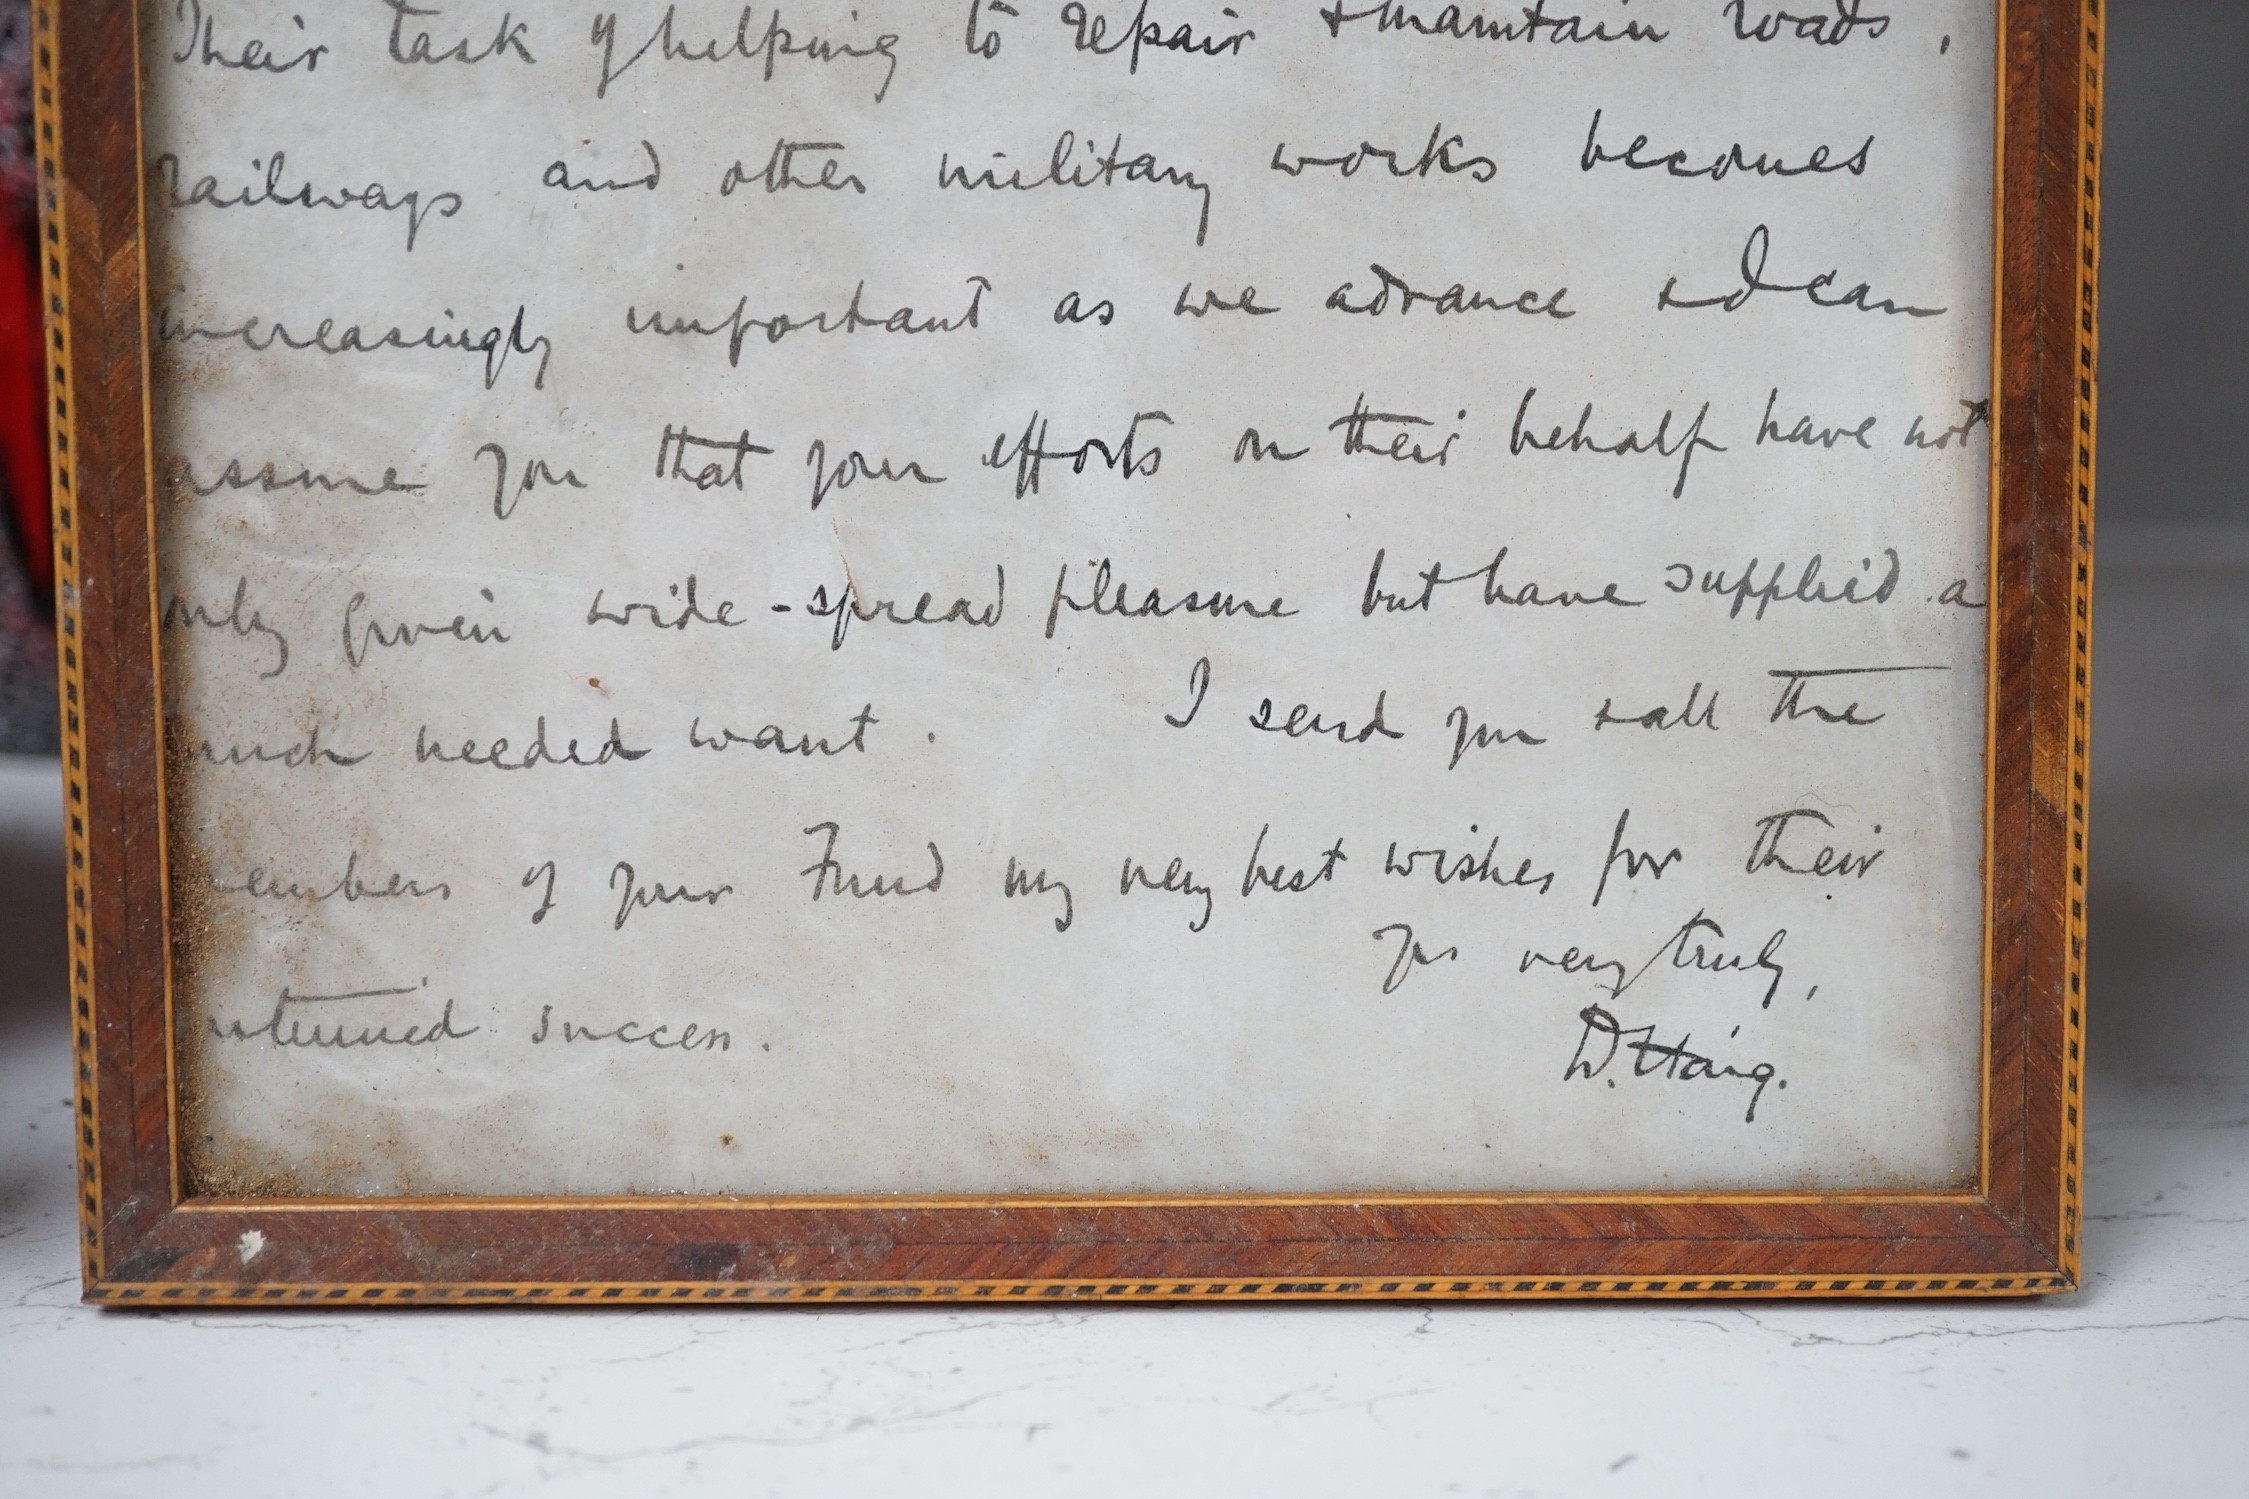 Their task of helping to repair & maintain roads,
railways and other military works becomes
increasingly important as we advance & I can
assure you that your efforts on their behalf have not
only given wide-spread pleasure but have supplied a
much needed want. I send you & all the
members of your Fund my very best wishes for their
Yrs very truly,
continued success.
D. Haig.